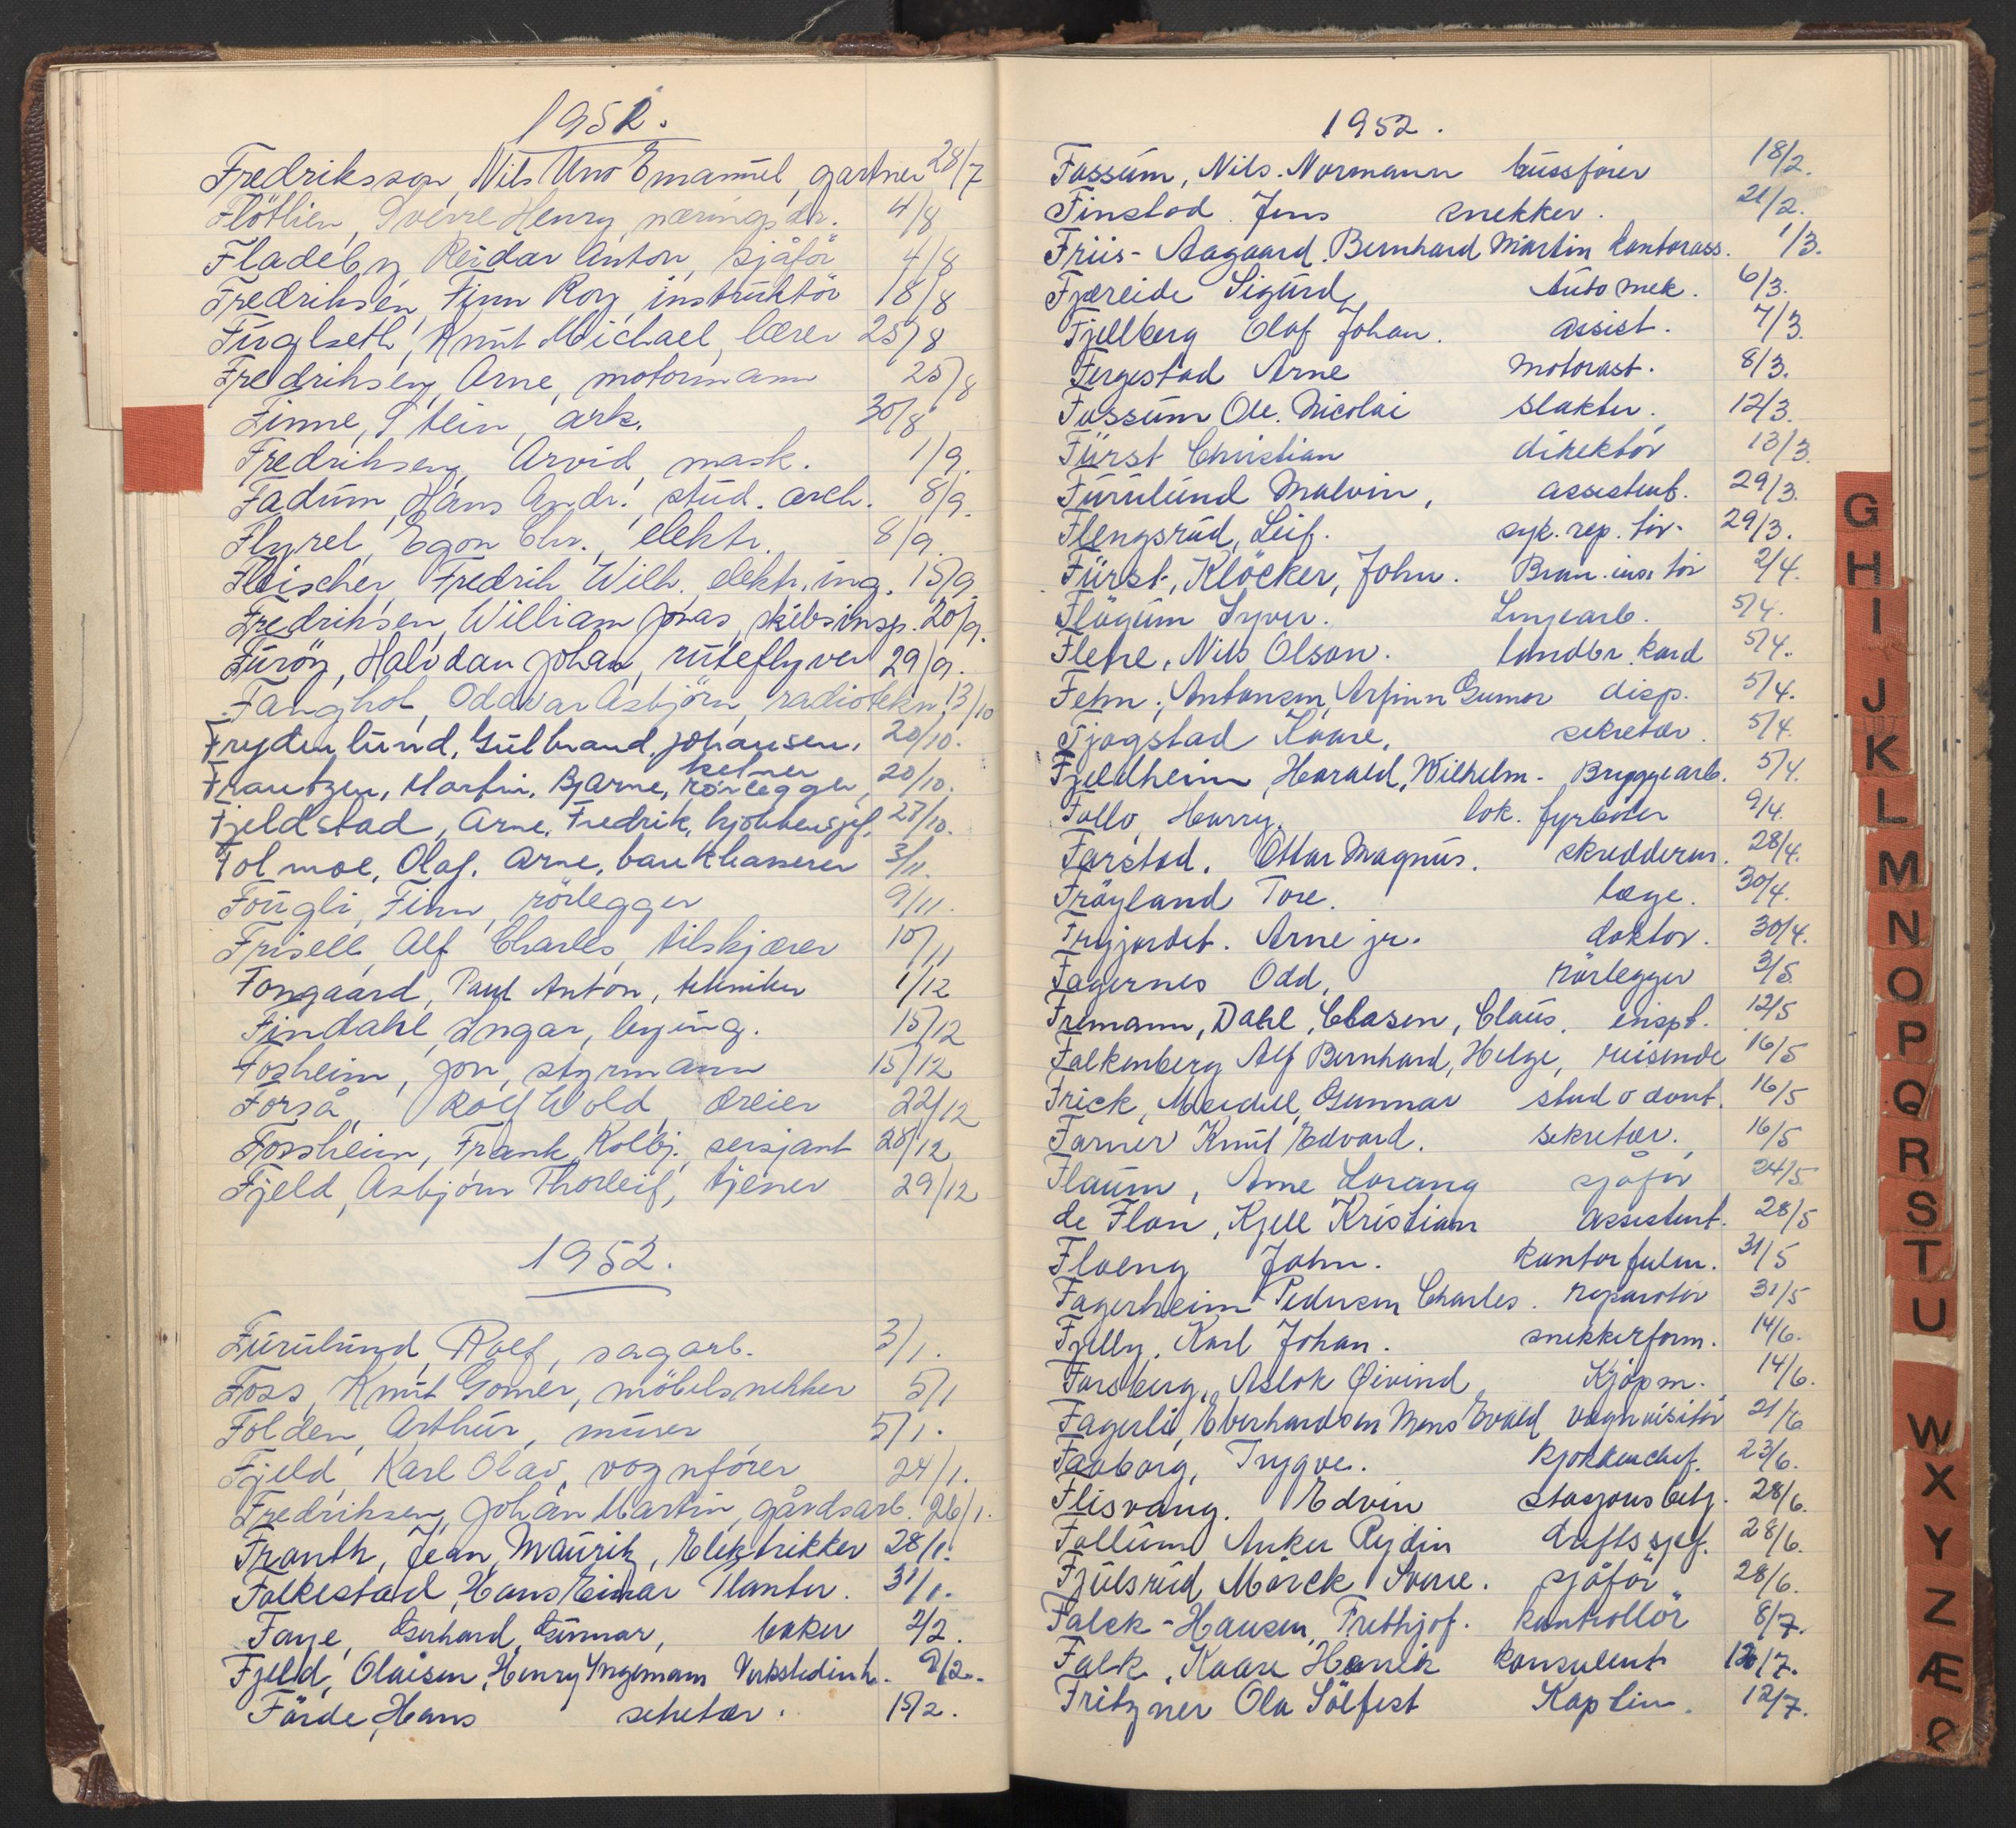 1951.
Fredriksson, Nils Uno Emanuel, gartner 28/7
Flötlien, Sverre Henry, næringsdr. 4/8
Fladeby, Reidar Anton, sjåför 4/8
Fredriksen, Finn Roy, instruktör 18/8
Fuglseth, Knut Michael, lærer 25/8
Fredriksen, Arne, motormann 25/8
Finne, Stein, ark. 30/8
Fredriksen, Arvid, mask. 1/9.
Fadum, Hans Andr., stud. arch. 8/9.
Flyrel, Egon Chr., elektr. 8/9.
Fleischer, Fredrik Wilh. elektr. ing. 15/9.
Fredriksen, William Jonas, skibsinsp. 20/9.
Furöy, Halvdan Johan, ruteflyver 29/9.
Fanghol, Oddvar Asbjörn, radiotekn. 13/10
Frydenlund, Gulbrand, Johansen, kelner 20/10.
Frantzen, Martin, Bjarne, rörlegger, 20/10.
Fjeldstad, Arne, Fredrik, kjökkensjef. 27/10.
Folmoe, Olaf, Arne, bankkasserer 3/11.
Fougli, Finn, rörlegger 9/11.
Frisell, Alf Charles, tilskjærer 10/11
Fongaard, Paul Anton, tekniker 1/12
Findahl, Ingar, bying. 15/12
Fosheim, Jon, styrmann 15/12
Forså, Rolf Wold, dreier 22/12
Forsheim, Frank Kolbj., sersjant 28/12
Fjeld, Asbjörn Thorleif, tjener 29/12
1952.
Furulund, Rolf, sagarb. 3/1.
Foss, Knut Gomer, möbelsnekker 5/1
Folden, Arthur, murer 5/1.
Fjeld, Karl Olav, vognförer 24/1.
Fredriksen, Johan Martin, gårdsarb. 26/1.
Franth, Jean, Mauritz, Elektrikker 28/1.
Falkestad, Hans Einar Planter. 31/1.
Faye, Gerhard, Gunnar, baker 2/2.
Fjeld, Olaisen, Henry Yngemann Verkstedinh. 9/2.
Förde, Hans sekretær. 15/2.
1952.
Fossum, Nils. Normann bussförer 18/2.
Finstad. Jens snekker. 21/2.
Friis-Aagaard. Bernhard Martin kontorass. 1/3.
Fjæreide Sigurd, Automek. 6/3.
Fjellberg Olaf Johan. assist. 7/3.
Fergestad Arne Motorast. 8/3.
Fossum Ole. Nicolai slakter. 12/3.
Fürst Christian direktör 13/3.
Furulund Malvin, assistent. 29/3.
Flengsrud, Leif. syk. rep. tör. 29/3.
Fürst, Klöcker, John. Bran. ins. tör 2/4.
Flögum Syver. Linjearb. 5/4.
Flehe, Nils Olson. landbr. kand 5/4.
Fehn, Antonsen, Arfinn Gumor disp. 5/4.
Fjogstad Kaare, sekretær. 5/4.
Fjeldheim, Harald, Wilhelm. Bryggearb. 5/4.
Follo, Harry, lok. fyrböter 9/4.
Farstad. Ottar Magnus. skredderm. 28/4.
Fröyland Tore. læge. 30/4.
Frygjordet. Arne jr. doktor. 30/4.
Fagernes Odd, Rörlegger 3/5.
Fremann, Dahl, Clasen, Claus, inspt. 12/5
Falkenberg Alf Bernhard, Helge, reisende 16/5
Frick, Meidell, Gunnar stud odont. 16/5
Farner Knut Edvard. sekretær. 16/5
Flaum, Arne Lorang sjåför 24/5
de Flon, Kjell Kristian assistent. 28/5
Floeng John. kontorfulm. 31/5
Fagerheim Pedersen Charles. reparatör 31/5
Fjelly. Karl Johan. snekkerform. 14/6.
Forsberg, Aslak Øivind Kjöpm. 14/6.
Fagerli, Eberhardsen Mons Evald vognvisitör 21/6
Faaborg, Trygve. kjökkenchef. 23/6.
Flisvang. Edvin stasjonsbetj. 28/6.
Follum Anker Rydin driftssjef. 28/6.
Fjulsrud Mörck Sverre. sjåför 28/6.
Falck-Hansen, Frithjof. kontrollör 8/7.
Falk, Kaare Henrik konsulent 12/7.
Fritzner Ola Sölfest Kaptein. 12/7.
G
H
I
J
K
L
M
N
O
P
Q
R
S
T
U
W
X
Y
Z
Æ